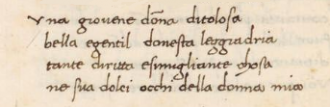 vna giouene dõna ditolosa
bella egentil donesta leggradria
tante diritta esimigliante chosa
ne sua dolci occhi della donna mia